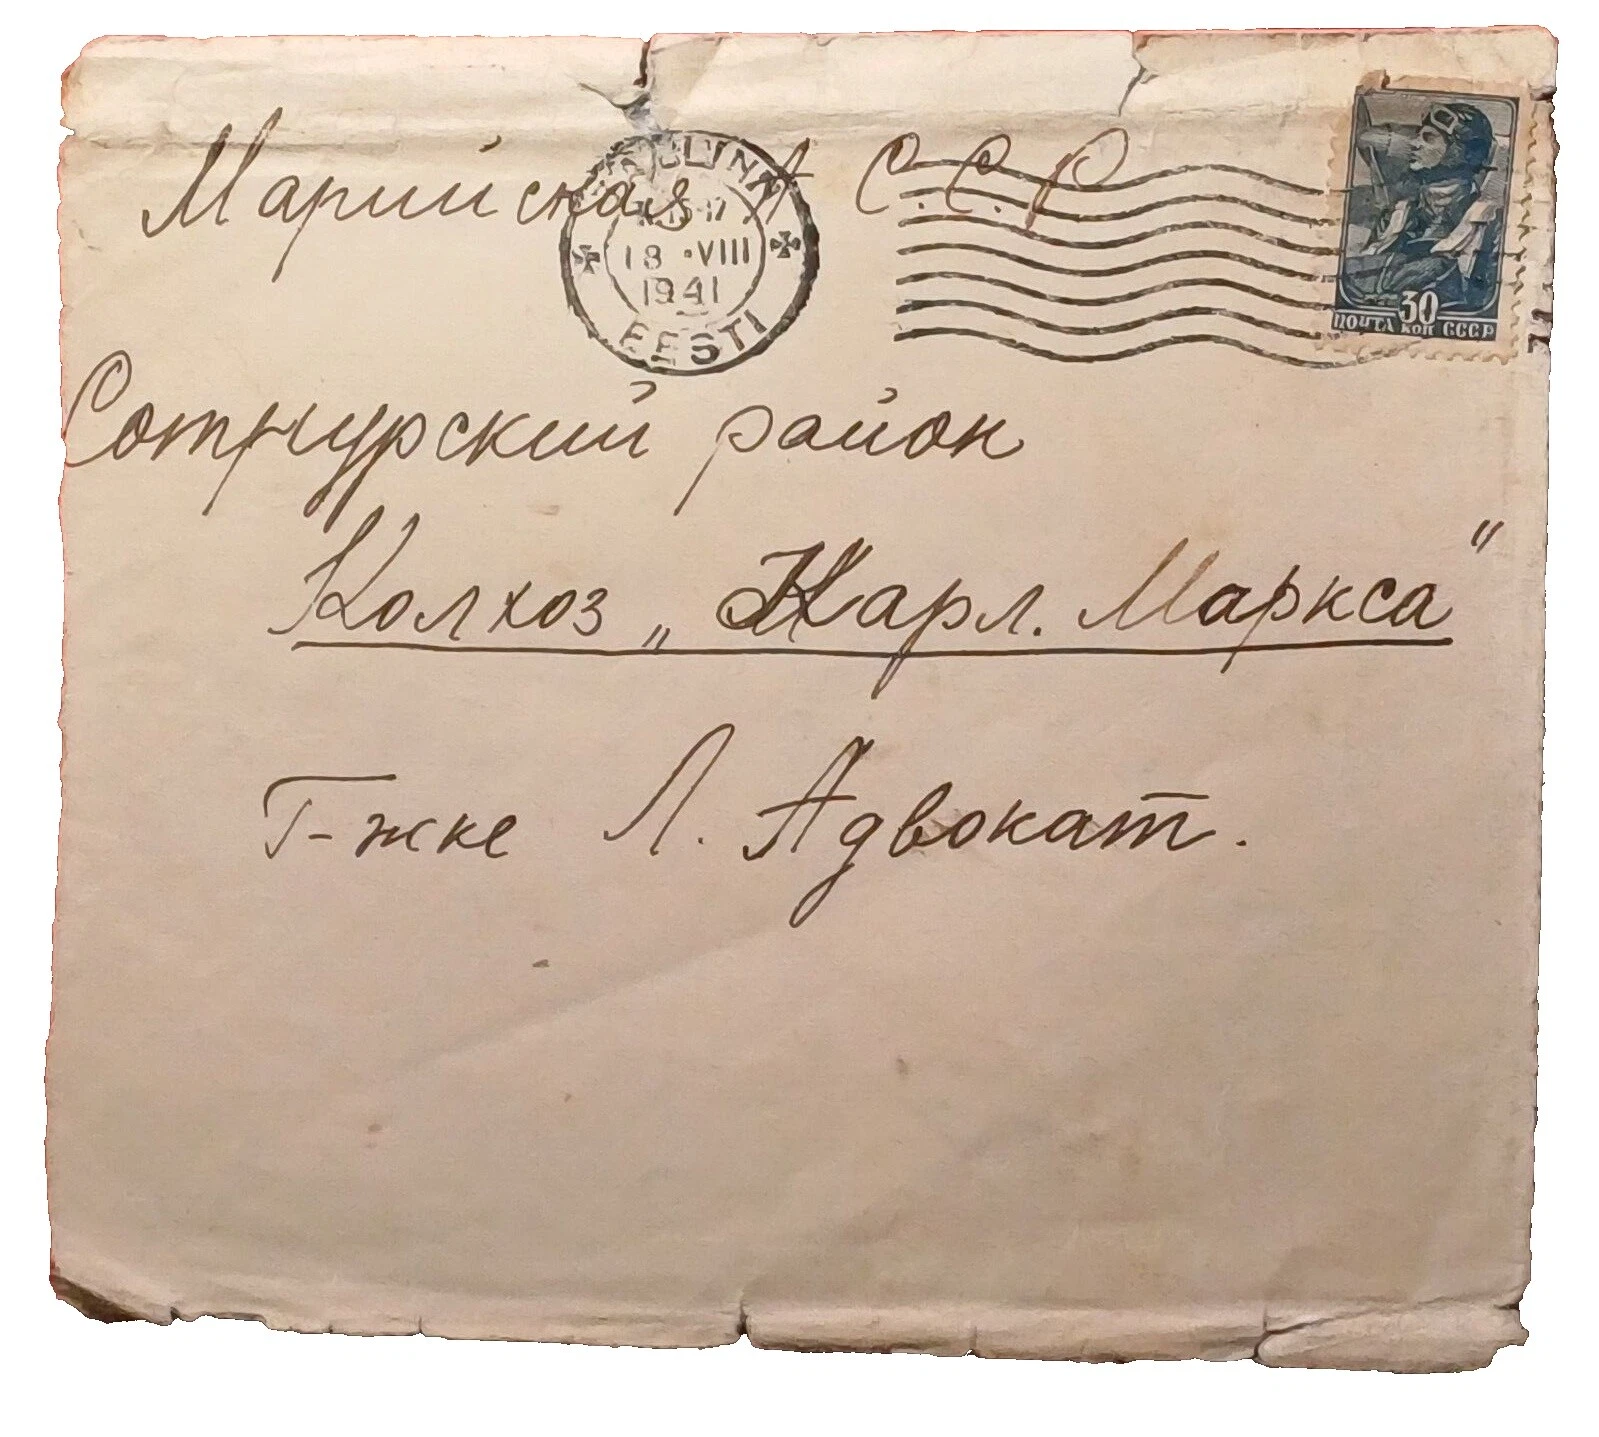 Марийская А С.С.Р
TALLINN
15-17
18 •VIII
1941
EESTI
30
ПОЧТА КОП СССР
Сотнурский район
Колхоз „Карл. Маркса"
Г-жке Л. Адвокат.